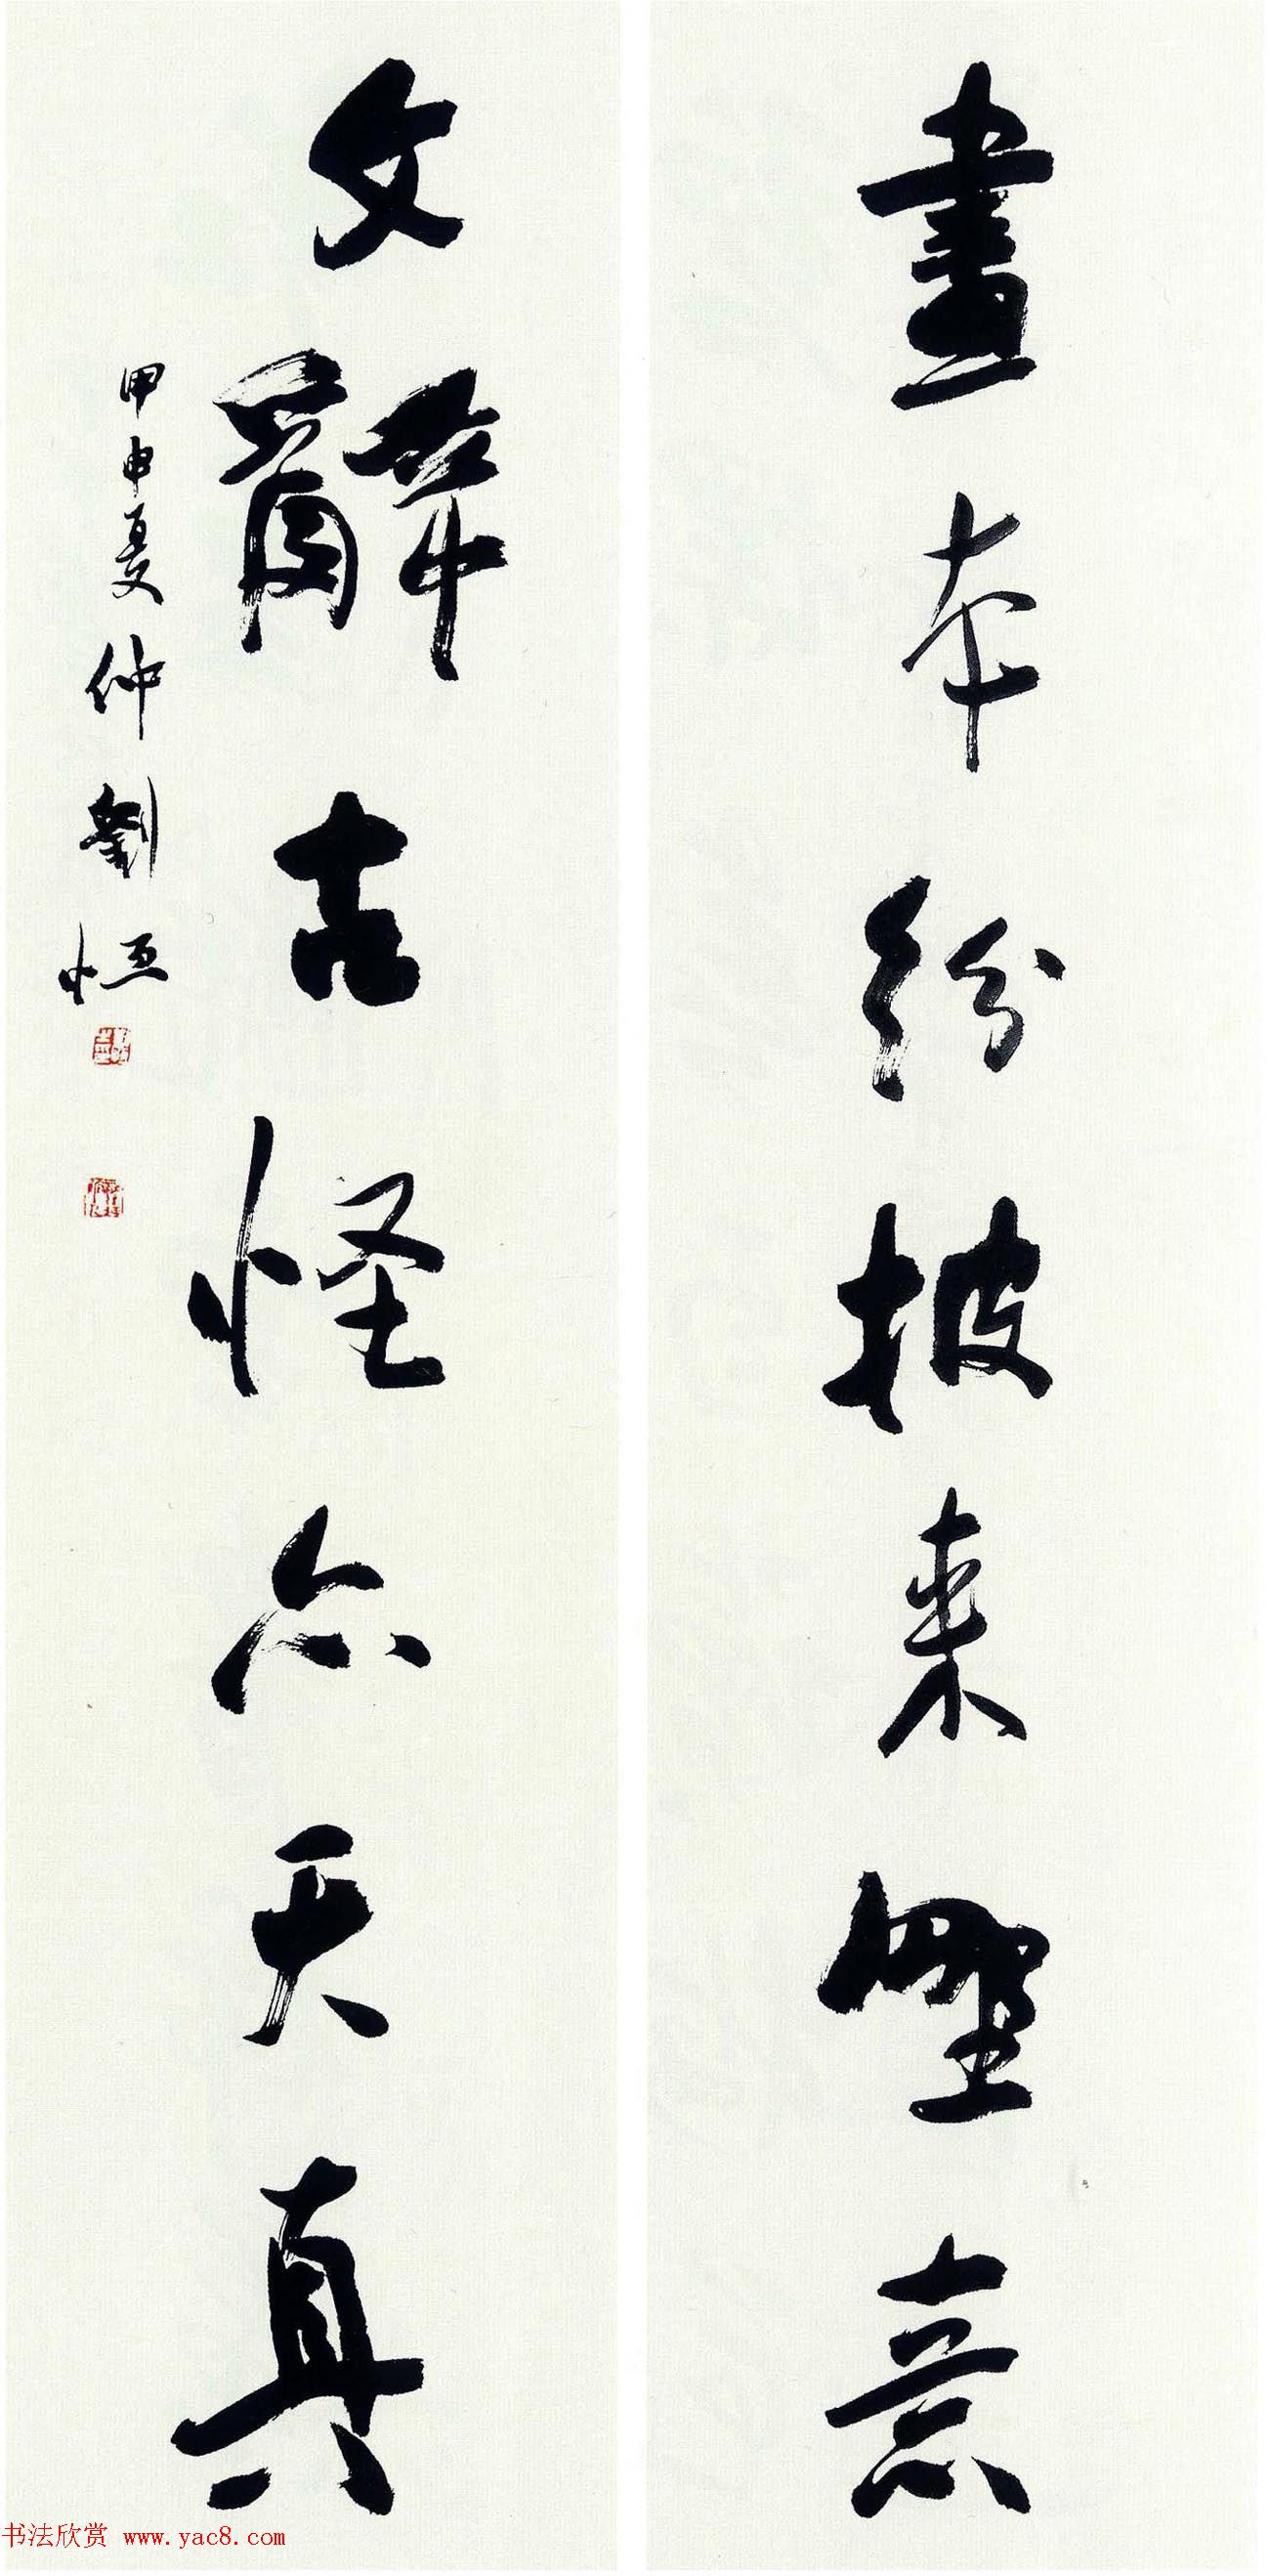 畫本紛披来野意
文辭古怪亦天真
甲申夏仲劉恒
书法欣赏 www.yac8.com